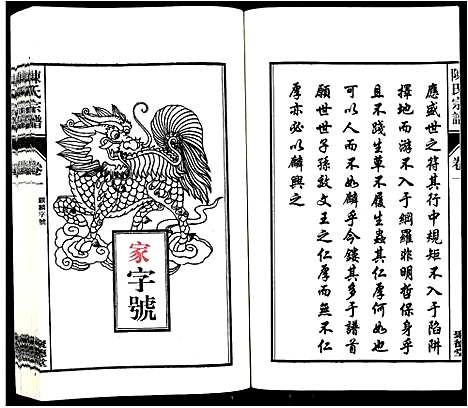 陳氏宗譜
卷一
應盛世之符其行中規矩不入于陷阱
擇地而游不入于網羅非明哲保身乎
且不踐生草不履生蟲其仁厚何如也
可以人而不如麟乎今鏤其多于譜首
願世世子孫致文王之仁厚而無不仁
厚亦必以麟興之
陳氏宗譜
卷
麒麟字號
家字號